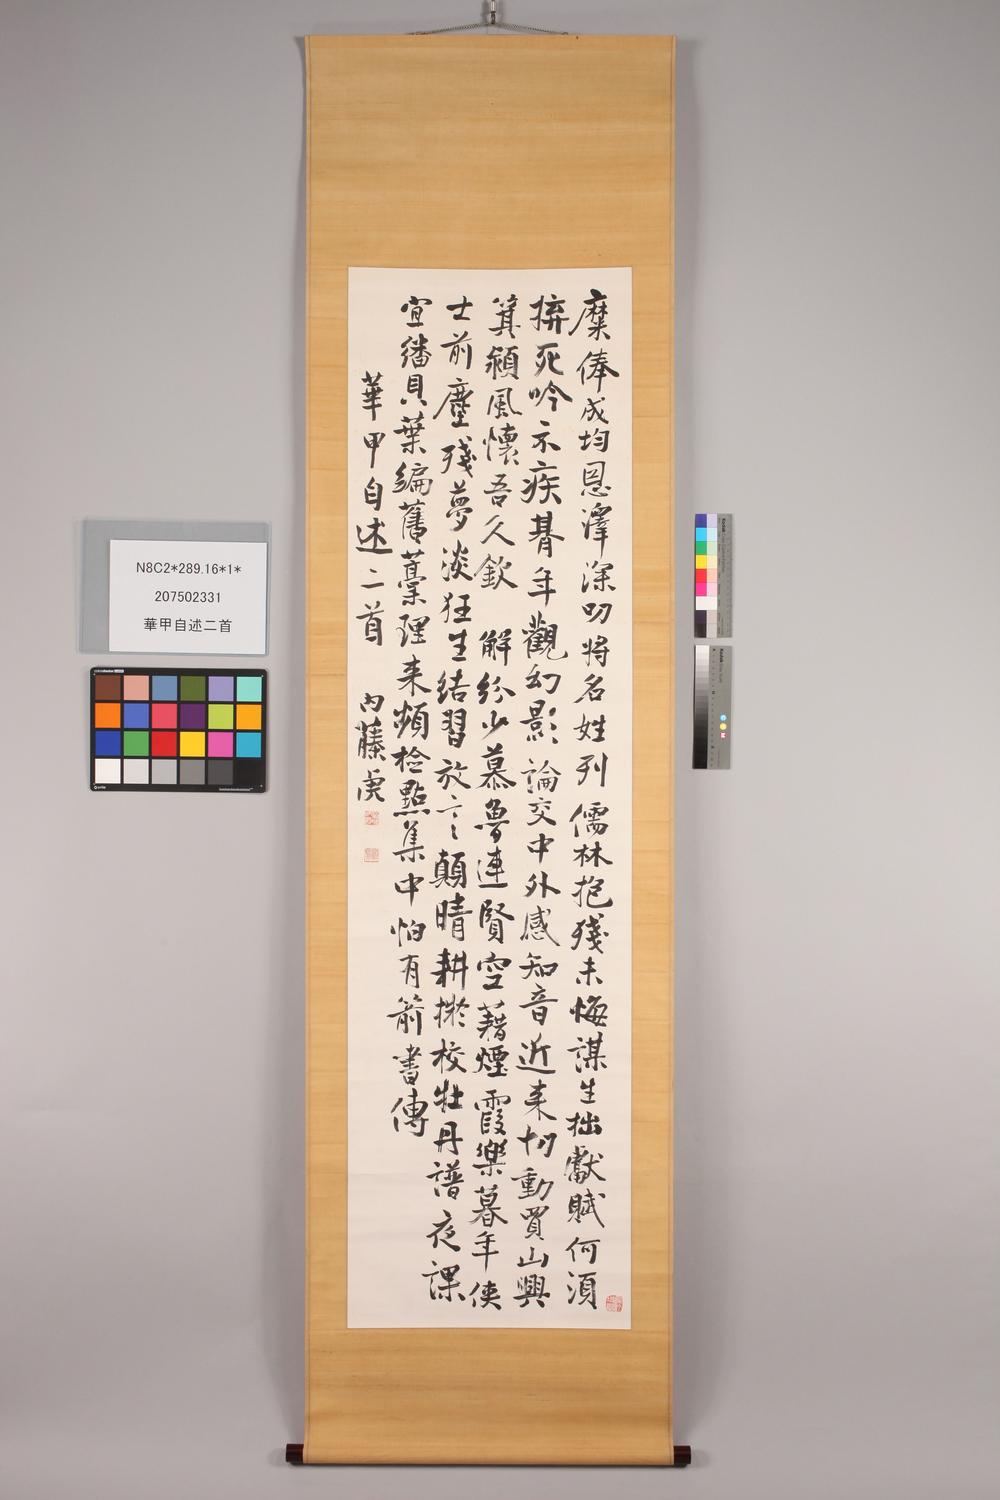 糜俸成均恩澤深叨將名姓列儒林抱殘未悔謀生拙獻賦何須
捹死吟示疾暮年觀幻影論交中外感知音近来切動買山興
箕潁風懷吾久欽 解紛少慕魯連賢空藉煙霞樂暮年俠
士前塵殘夢淡狂生結習放言顛晴耕擬校牡丹譜夜課
宜繙貝葉編舊藁理来頻檢點集中怕有箭書傳
華甲自述二首 内藤虎
N8C2*289.16*1*
207502331
華甲自述二首